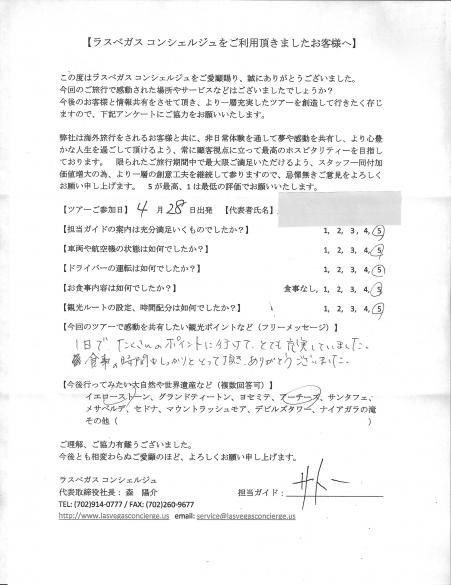 【ラスベガス コンシェルジュをご利用頂きましたお客様へ】
この度はラスベガス コンシェルジュをご愛顧賜り、誠にありがとうございました。
今回のご旅行で感動された場所やサービスなどはございましたでしょうか？
今後のお客様と情報共有をさせて頂き、より一層充実したツアーを創造して行きたく存じ
ますので、下記アンケートにご協力をお願いいたします。
弊社は海外旅行をされるお客様と共に、非日常体験を通して夢や感動を共有し、より心豊
かな人生を過ごして頂けるよう、常に顧客視点に立って最高のホスピタリティーを目指し
ております。 限られたご旅行期間中で最大限ご満足いただけるよう、スタッフ一同付加
価値増大の為、より一層の創意工夫を継続して参りますので、忌憚無きご意見をよろしく
お願い申し上げます。 5が最高、1は最低の評価でお願いいたします。
【ツアーご参加日】 4 月 28 日出発 【代表者氏名】
【担当ガイドの案内は充分満足いくものでしたか？】 1, 2, 3, 4, 5
【車両や航空機の状態は如何でしたか？】 1, 2, 3, 4, 5
【ドライバーの運転は如何でしたか？】 1, 2, 3, 4, 5
【お食事内容は如何でしたか？】 食事なし, 1, 2, 3, 4, 5
【観光ルートの設定、時間配分は如何でしたか？】 1, 2, 3, 4, 5
【今回のツアーで感動を共有したい観光ポイントなど（フリーメッセージ）】
1日で たくさんのポイントに行けて、とても充実していました。
食事の時間もしっかりとって頂き、ありがとうございました。
【今後行ってみたい大自然や世界遺産など（複数回答可）】
イエローストーン、グランドティートン、ヨセミテ、アーチーズ、サンタフェ、
メサベルデ、セドナ、マウントラッシュモア、デビルズタワー、ナイアガラの滝
その他（ ）
ご理解、ご協力有難うございました。
今後とも相変わらぬご愛顧のほど、よろしくお願い申し上げます。
ラスベガス コンシェルジュ
代表取締役社長： 森 陽介 担当ガイド： サトー
TEL: (702)914-0777 / FAX: (702)260-9677
http://www.lasvegasconcierge.us email: service@lasvegasconcierge.us